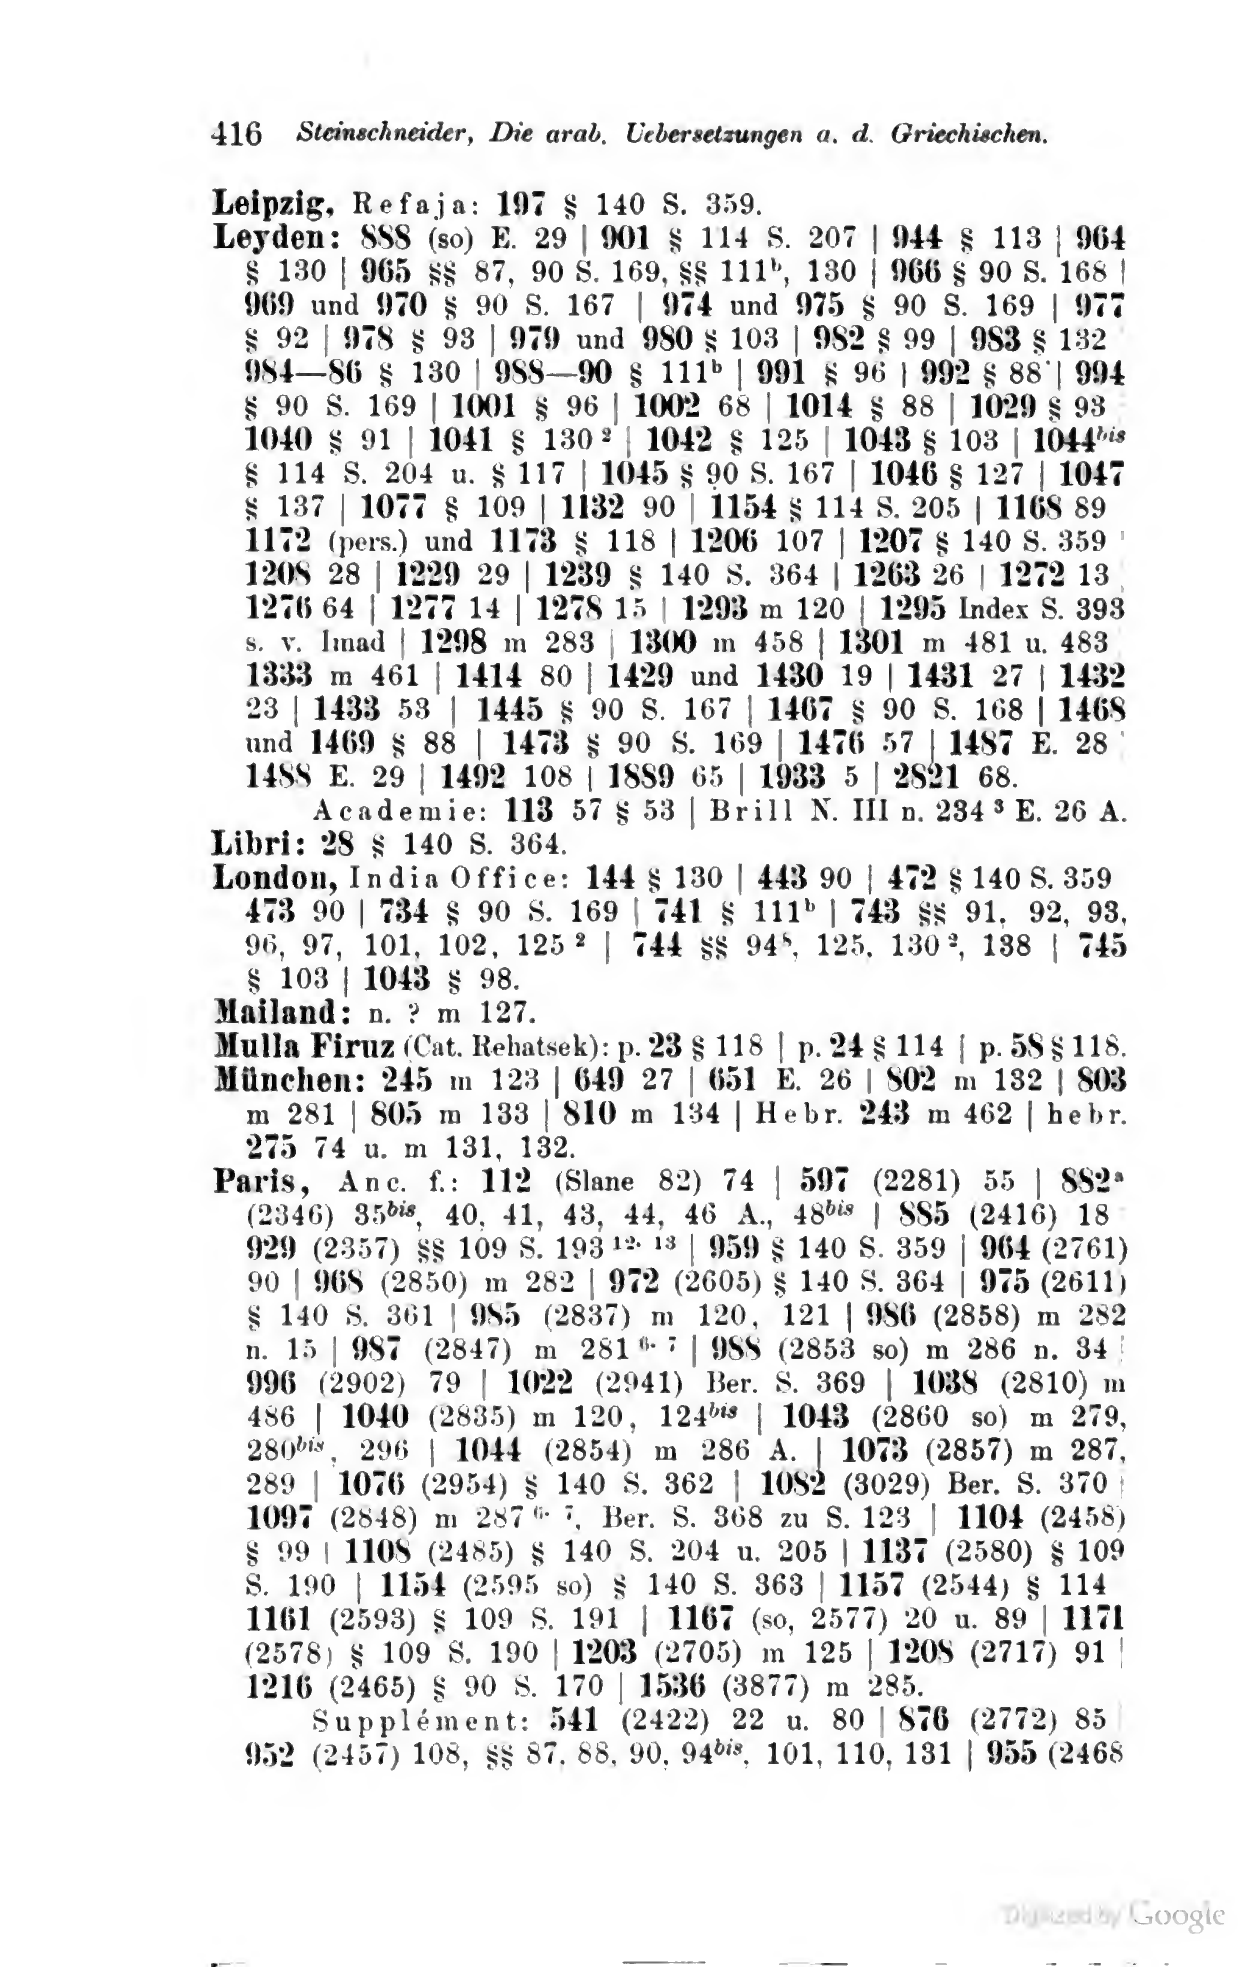 416 Steinschneider, Die arab. Uebersetzungen a. d. Griechischen.
Leipzig, Refaja: 197 § 140 S. 359.
Leyden: 888 (so) E. 29 | 901 § 114 S. 207 | 944 § 113 | 964
§ 130 | 965 §§ 87, 90 S. 169, §§ 111ᵇ, 130 | 966 § 90 S. 168 |
969 und 970 § 90 S. 167 | 974 und 975 § 90 S. 169 | 977
§ 92 | 978 § 93 | 979 und 980 § 103 | 982 § 99 | 983 § 132
984—86 § 130 | 988—90 § 111ᵇ | 991 § 96 | 992 § 88 | 994
§ 90 S. 169 | 1001 § 96 | 1002 68 | 1014 § 88 | 1029 § 93
1040 § 91 | 1041 § 130² | 1042 § 125 | 1043 § 103 | 1044ᵇⁱˢ
§ 114 S. 204 u. § 117 | 1045 § 90 S. 167 | 1046 § 127 | 1047
§ 137 | 1077 § 109 | 1132 90 | 1154 § 114 S. 205 | 1168 89
1172 (pers.) und 1173 § 118 | 1206 107 | 1207 § 140 S. 359 |
1208 28 | 1229 29 | 1239 § 140 S. 364 | 1263 26 | 1272 13
1276 64 | 1277 14 | 1278 15 | 1293 m 120 | 1295 Index S. 393
s. v. Imad | 1298 m 283 | 1300 m 458 | 1301 m 481 u. 483
1333 m 461 | 1414 80 | 1429 und 1430 19 | 1431 27 | 1432
23 | 1433 53 | 1445 § 90 S. 167 | 1467 § 90 S. 168 | 1468
und 1469 § 88 | 1473 § 90 S. 169 | 1476 57 | 1487 E. 28
1488 E. 29 | 1492 108 | 1889 65 | 1933 5 | 2821 68.
Academie: 113 57 § 53 | Brill N. III n. 234³ E. 26 A.
Libri: 28 § 140 S. 364.
London, India Office: 144 § 130 | 443 90 | 472 § 140 S. 359
473 90 | 734 § 90 S. 169 | 741 § 111ᵇ | 743 §§ 91, 92, 93,
96, 97, 101, 102, 125² | 744 §§ 94⁸, 125, 130², 138 | 745
§ 103 | 1043 § 98.
Mailand: n. ? m 127.
Mulla Firuz (Cat. Rehatsek): p. 23 § 118 | p. 24 § 114 | p. 58 § 118.
München: 245 m 123 | 649 27 | 651 E. 26 | 802 m 132 | 803
m 281 | 805 m 133 | 810 m 134 | Hebr. 243 m 462 | hebr.
275 74 u. m 131, 132.
Paris, Anc. f.: 112 (Slane 82) 74 | 597 (2281) 55 | 882ᵃ
(2346) 35ᵇⁱˢ, 40, 41, 43, 44, 46 A., 48ᵇⁱˢ | 885 (2416) 18
929 (2357) §§ 109 S. 193¹²· ¹³ | 959 § 140 S. 359 | 964 (2761)
90 | 968 (2850) m 282 | 972 (2605) § 140 S. 364 | 975 (2611)
§ 140 S. 361 | 985 (2837) m 120, 121 | 986 (2858) m 282
n. 15 | 987 (2847) m 281⁶· ⁷ | 988 (2853 so) m 286 n. 34 |
996 (2902) 79 | 1022 (2941) Ber. S. 369 | 1038 (2810) m
486 | 1040 (2835) m 120, 124ᵇⁱˢ | 1043 (2860 so) m 279,
280ᵇⁱˢ, 296 | 1044 (2854) m 286 A. | 1073 (2857) m 287,
289 | 1076 (2954) § 140 S. 362 | 1082 (3029) Ber. S. 370 |
1097 (2848) m 287⁶· ⁷, Ber. S. 368 zu S. 123 | 1104 (2458)
§ 99 | 1108 (2485) § 140 S. 204 u. 205 | 1137 (2580) § 109
S. 190 | 1154 (2595 so) § 140 S. 363 | 1157 (2544) § 114
1161 (2593) § 109 S. 191 | 1167 (so, 2577) 20 u. 89 | 1171
(2578) § 109 S. 190 | 1203 (2705) m 125 | 1208 (2717) 91 |
1216 (2465) § 90 S. 170 | 1536 (3877) m 285.
Supplément: 541 (2422) 22 u. 80 | 876 (2772) 85
952 (2457) 108, §§ 87, 88, 90, 94ᵇⁱˢ, 101, 110, 131 | 955 (2468
Digitized by Google